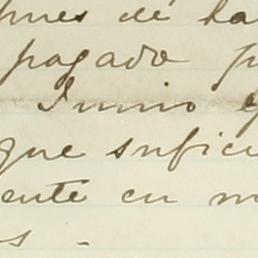 pues de ha
pagado p
Junio
que sufici
ente en m
s -